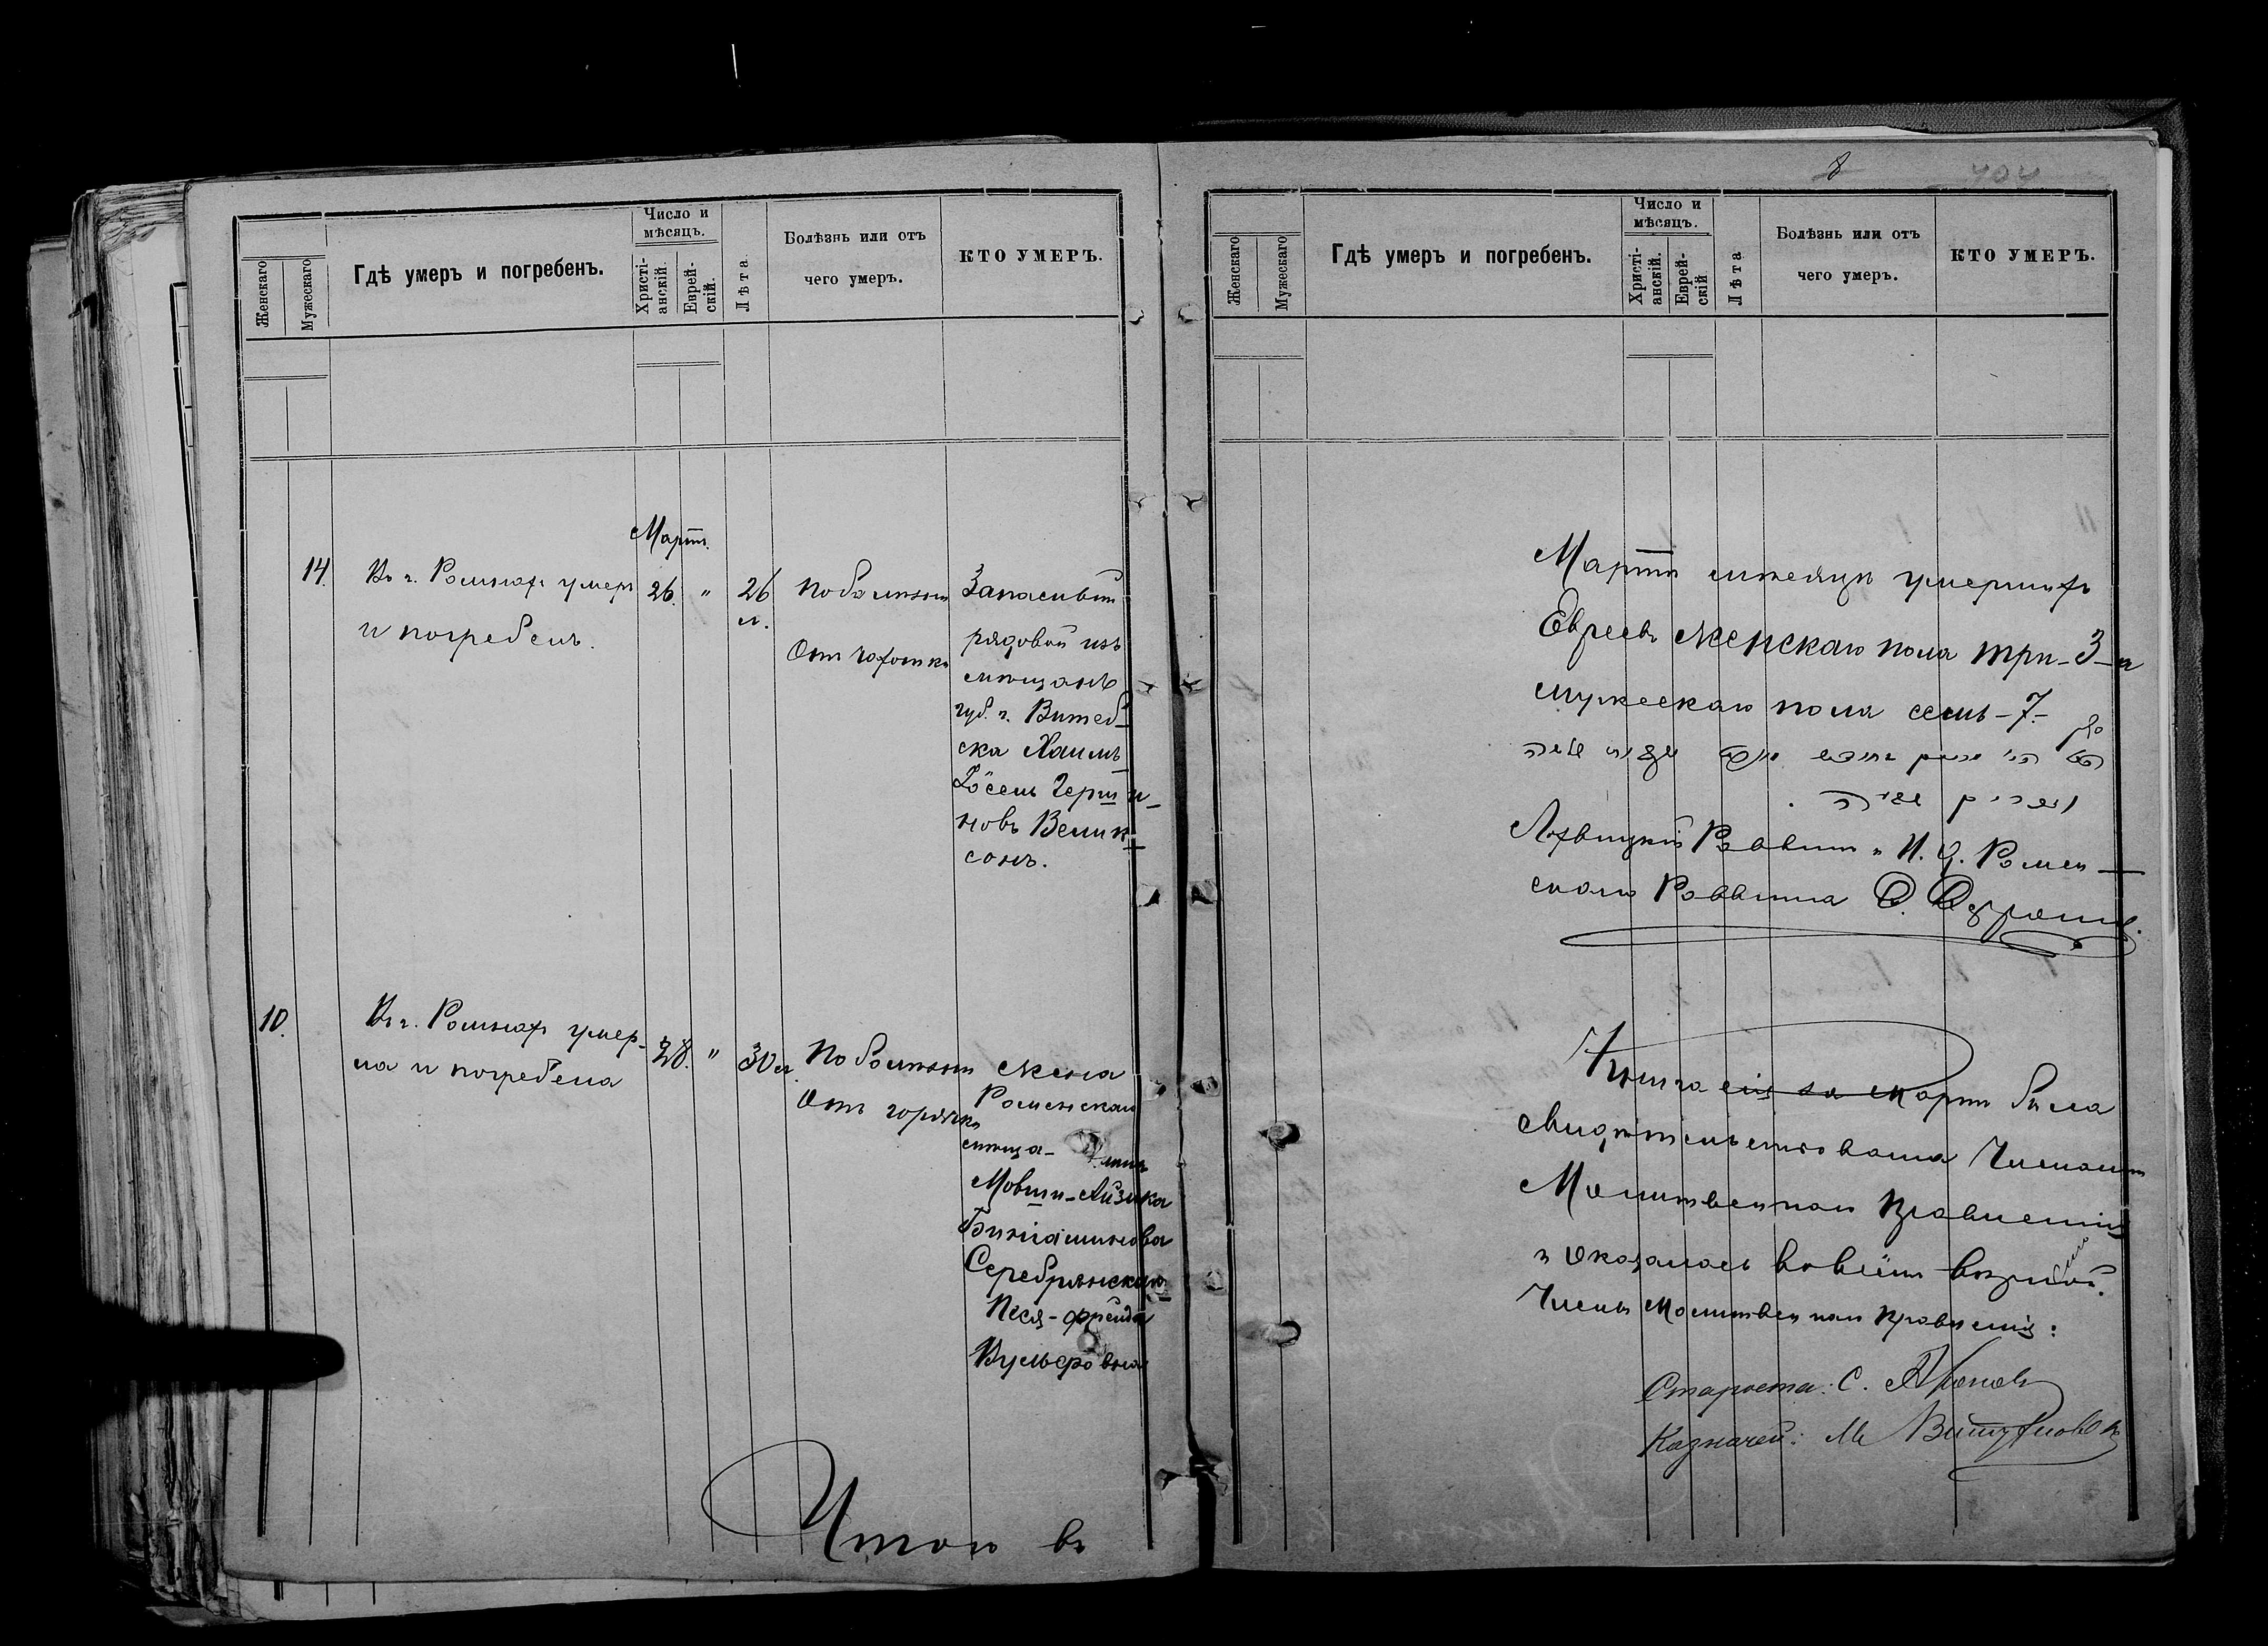 Женскаго
Мужескаго
Гдѣ умеръ и погребенъ.
Число и
мѣсяцъ.
Христі-
анскій.
Еврей-
скій.
Лѣта
Болѣзнь или отъ
чего умеръ.
КТО УМЕРЪ.
Мартъ
14.
Въ г. Ромнахъ умеръ
и погребенъ.
26. " 26
л.
По болѣзни
Отъ чахотки
Запасный
рядовой изъ
мѣщанъ
губ. г. Витеб-
ска Хаимъ
Іосель
новъ
сонъ.
10.
Въ г. Ромнахъ умер-
ла и погребена
28. " 30 л.
По болѣзни
Отъ горячки
Жена
Роменскаго
мѣща-
Мовши-Айзика
Биніаминова
Серебрянскаго
Песя-Фрейда
Вульфовна
Итого въ
8
404
Женскаго
Мужескаго
Гдѣ умеръ и погребенъ.
Число и
мѣсяцъ.
Христі-
анскій.
Еврей-
скій
Лѣта
Болѣзнь или отъ
чего умеръ.
КТО УМЕРЪ.
Мартѣ мѣсяцѣ умершихъ
Евреевъ женскаго пола три-3-и
мужескаго пола семь-7-
Лохвицкій Раввинъ и И. д. Ромен-
скаго Раввина
Книга сія за Мартъ была
свидѣтельствована Членами
Молитвеннаго Правленія
и оказалась во всемъ вѣрной.
Члены Молитвеннаго Правленія:
Староста: С. Ароновъ
Казначей: М